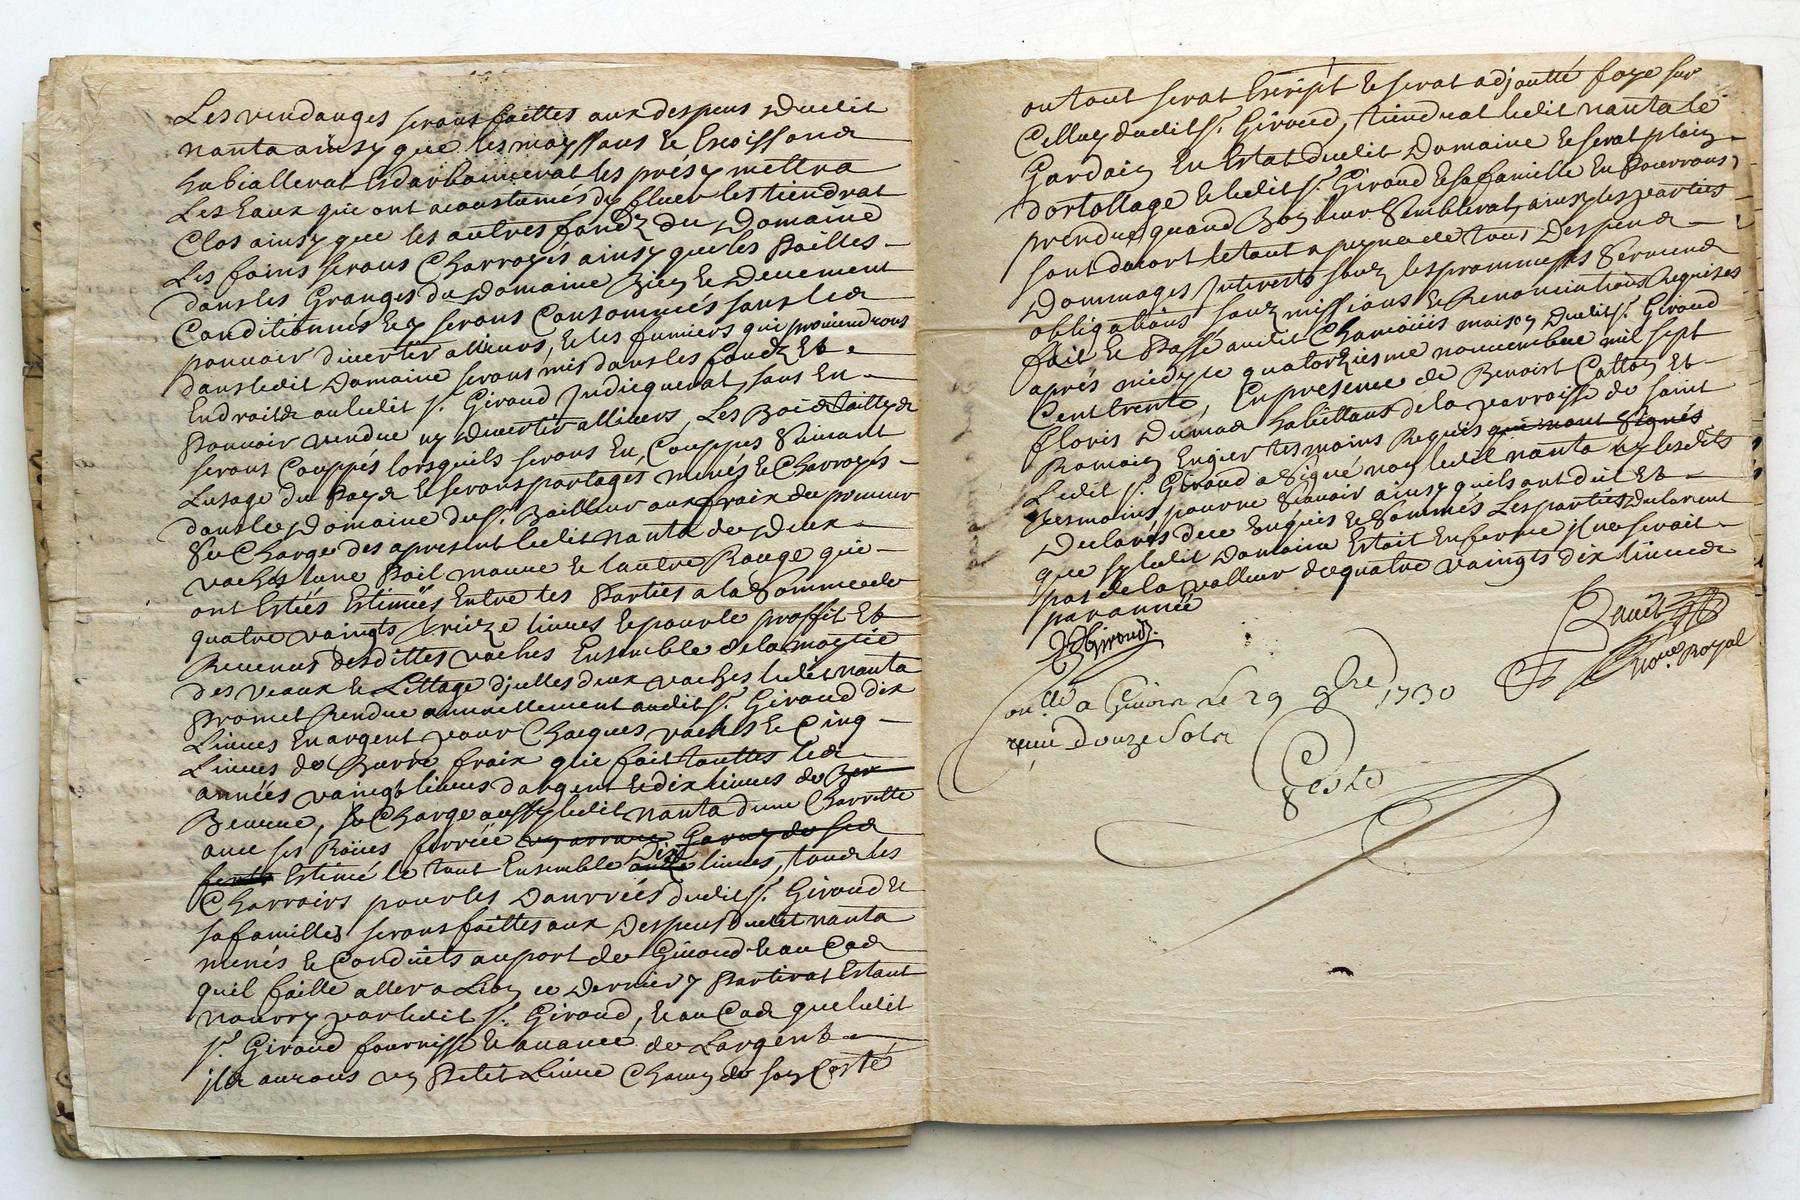 Les vendanges serons faittes aux despens Dudit
nanta ainsy que les moyssons Et
les présy mettra
Les Eaux qui ont acoustumés dy fluer les tiendrat
Clos ainsy que les autres fondz du Domaine
Les foins serons Charroyés ainsy que les Pailles
dans les Granges du Domaine Bien Et Deuement
Conditionnés Et y serons Consommés sans les
pouvoir divertir allieurs, Et les fumiers qui proviendrons
dans ledit Domaine serons mis dans les fondz Et
Endroits ou ledit Sr. Giroud Judicquerat, sans En
Pouvoir vendre ny Divertir allieurs, Les Bois Taillyds
serons Couppés lorsquils serons En Couppes Suivant
Lusage du Pays Et serons partages menés Et Charroyés
dans les Domaine du Sr. Bailleur aux fraix du preneur
Se Charge des apresent ledit nanta de Deux
vaches lune Poil mauve Et lautre Rouge qui
ont Estées Estimées Entre les Parties a la Somme de
quatre vaingts treize livres Et pour le proffit Et
Revenus desdittes vaches Ensemble de la moytié
des veaux Et Lettage djcelles deux vaches ledit nanta
Promet Rendre annuellement audit Sr. Giroud dix
Livres En argent pour Chacques vaches Et Cinq
Livres de Burre fraix qui fait touttes les
années vaingt livres dargent Et dix livres de Ber
Beurre, se Charge aussy ledit nanta dune Charrette
avec ses Roües ferrée
Estimé le tout Ensemble Dix livres, tous les
Charrois pour les Danrrées dudit Sr. Giroud Et
sa famille serons faittes aux Despens Dudit nanta
menés Et Conduits au port de Givord Et au Cas
quil faille aller a Lion ce Dernier y Partirat Estant
nourry par ledit Sr. Giroud, Et au Cas que ledit
Sr. Giroud fournisse Et avance de Largent
jls aurons un Petit Livre Chacun de son Costé
ou tout serat Escript Et serat adjoutté foye sur
Celluy dudit Sr. Giroud, tiendrat ledit nanta le
Jardain En Estat dudit Domaine Et serat plain
dortollage Et ledit Sr. Giroud Et sa famille En Pourrons
prendre quand Bon leur Semblerat, ainsy les parties
sont dacort le tout a peyne de tous Despens
Dommages Interests soubz les promesses Serments
obligations soubzmissions Et Renonciations Requises
fait Et Passé audit Chamoüis maison Dudit Sr. Giroud
aprés midy le quatorziesme novembre mil sept
Cent trente, En presence de Benoist Catton Et
floris Dumas habittans de la parroisse de saint
Romain Engier tesmoins Requis qui nont Signés
Ledit Sr. Giroud a Signé non ledit nanta ny lesdits
tesmoins pour ne Scavoir ainsy quils ont dit Et
Declarés de ce Enquis Et Sommés Les parties Declarent
que sy ledit Domaine Estoit En ferme jl ne seroit
pas de la valleur de quatre vaingts dix livres
par année
Giroud
nore. Royal
onllé a Givors Le 29 9bre 1730
reçu Douze Sols